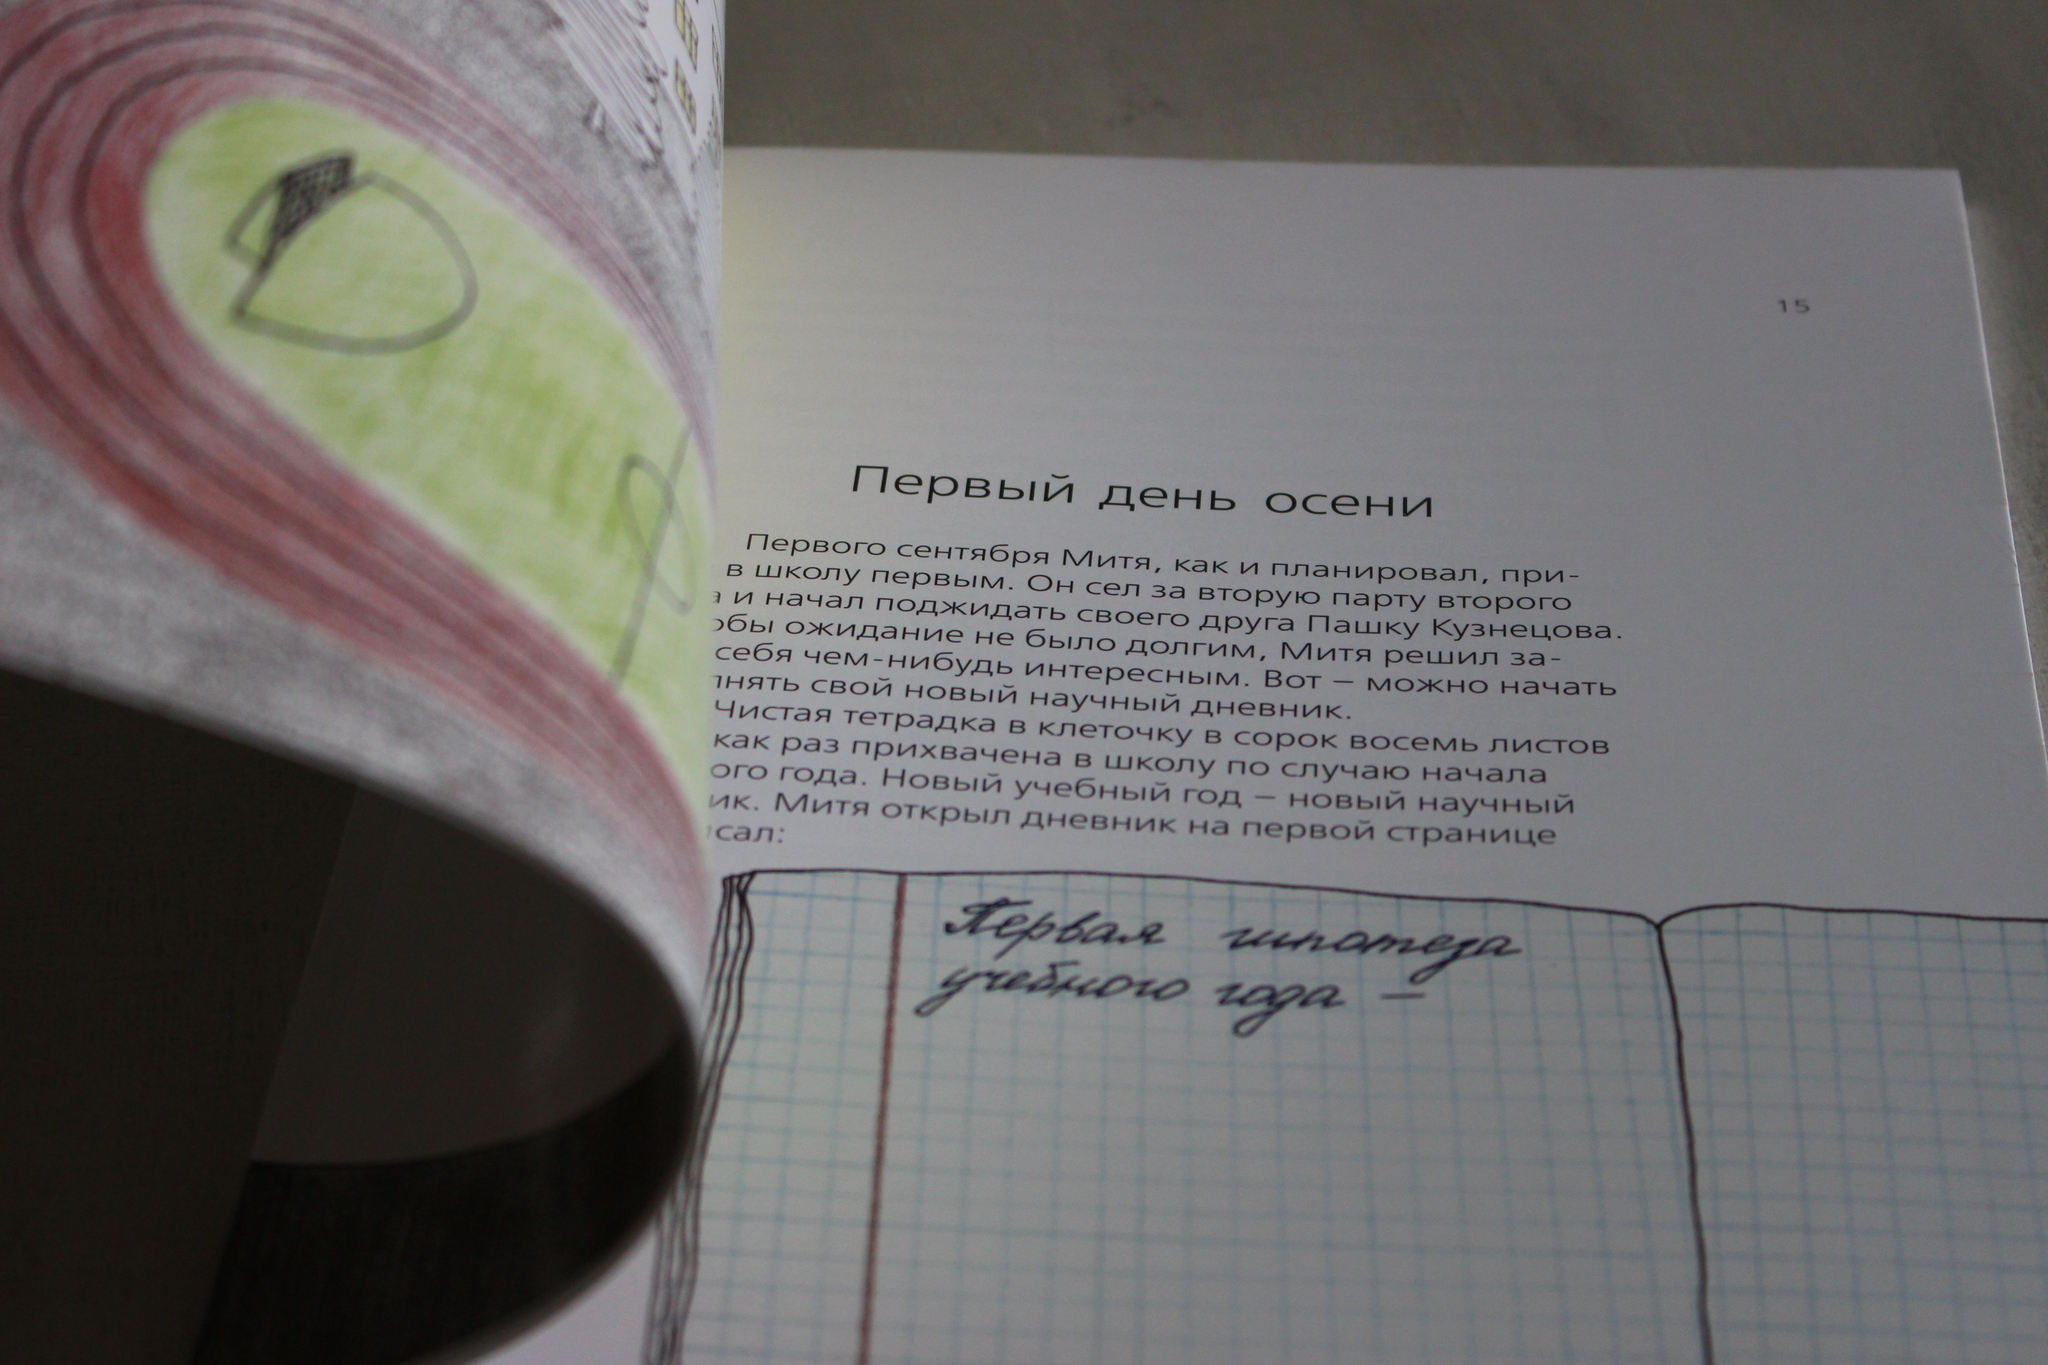 15
Первый день осени
Первого сентября Митя, как и планировал, при-
в школу первым. Он сел за вторую парту второго
и начал поджидать своего друга Пашку Кузнецова.
ожидание не было долгим, Митя решил за-
себя чем-нибудь интересным. Вот – можно начать
свой новый научный дневник.
Чистая тетрадка в клеточку в сорок восемь листов
как раз прихвачена в школу по случаю начала
года. Новый учебный год – новый научный
Митя открыл дневник на первой странице
Первая гипотеза
учебного года –